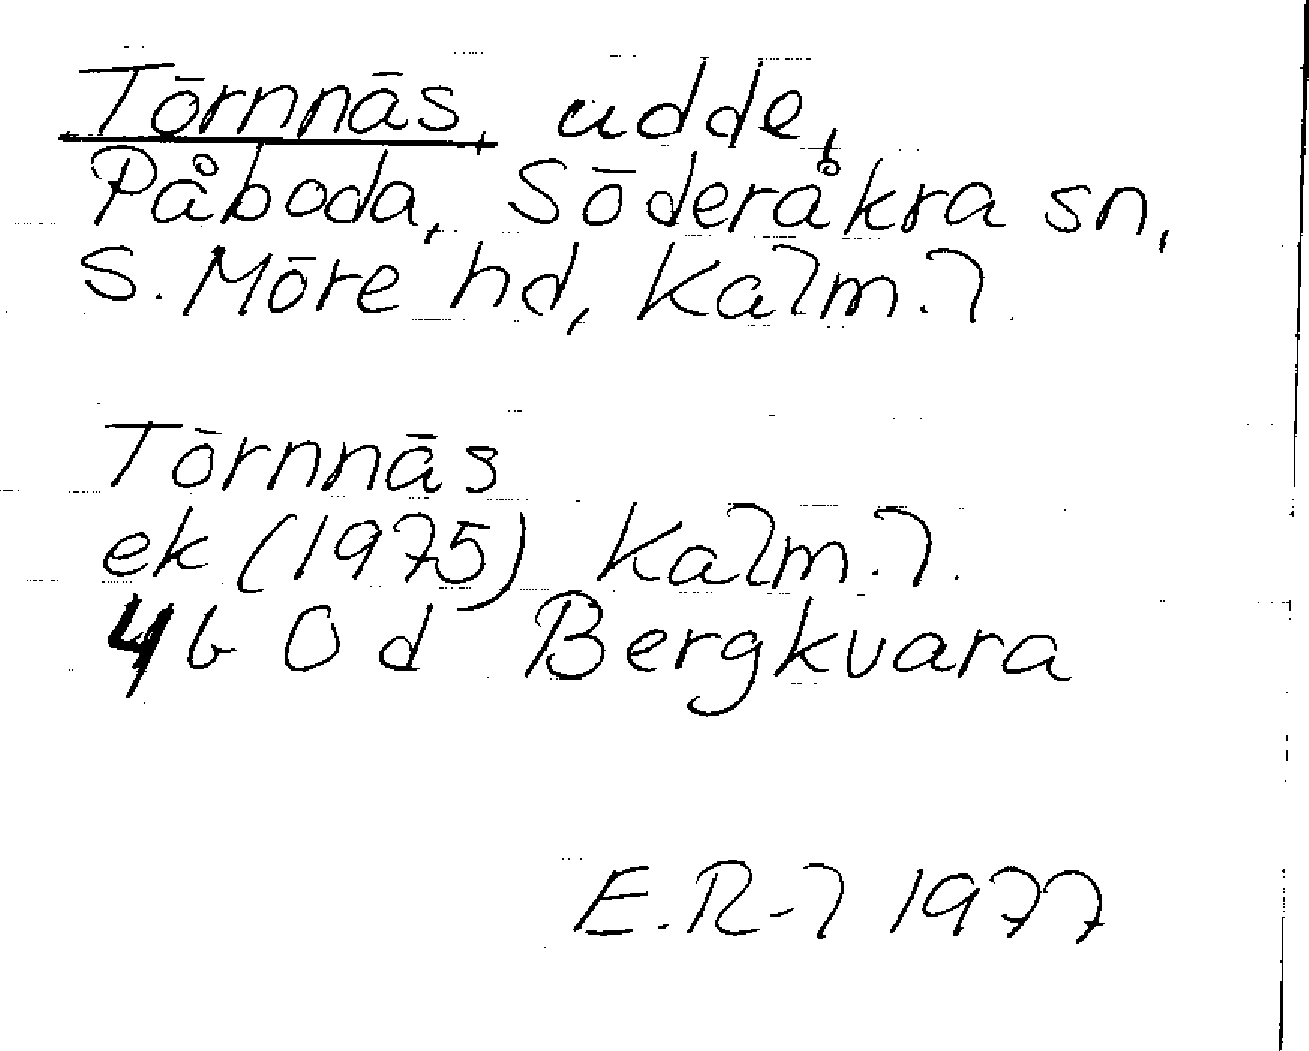 Törnnäs, udde,
Påboda, Söderåkra sn,
S. Möre hd, Kalm. l
Törnnäs
ek (1975) Kalm. l.
4b 0 d Bergkvara
E.R-l 1977